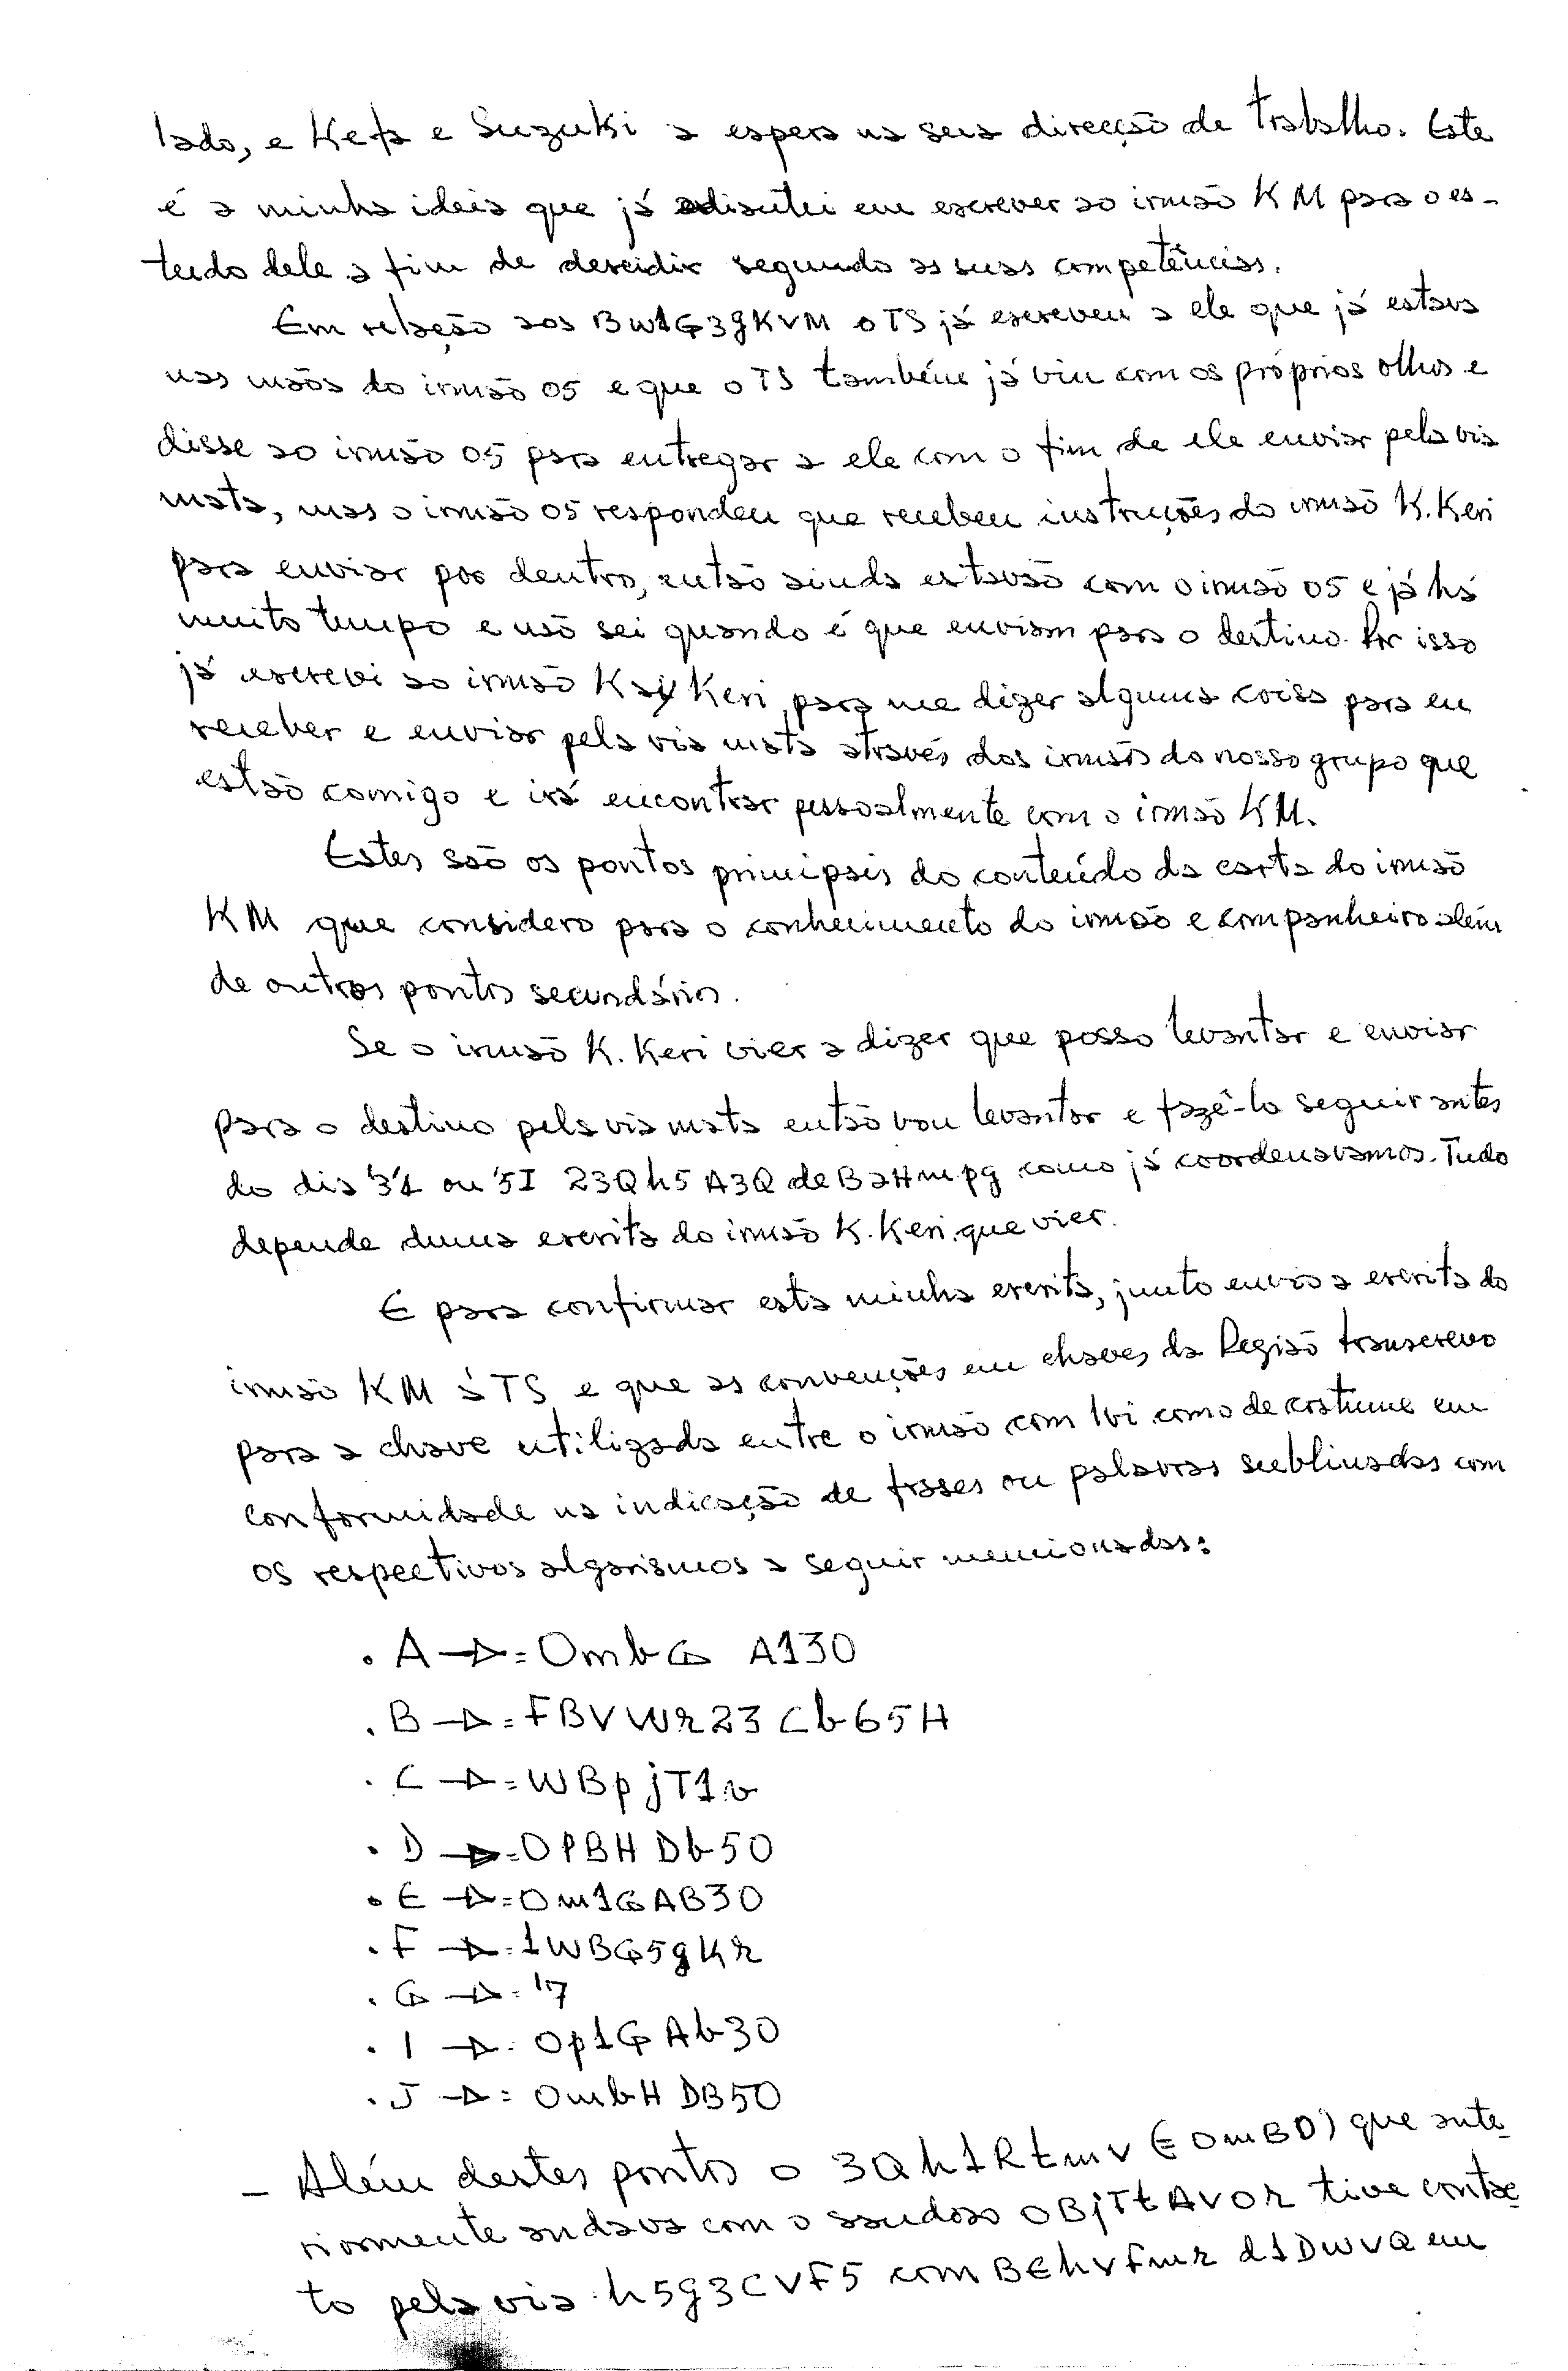 lado, e Kefa e Suzuki a espera na sua direcção de Trabalho. Este
é a minha ideia que já discuti em escrever ao irmão KM para o es-
tudo dele a fim de descidir segundo as suas competências.
Em relação aos Bw1G3gKVM o TS já escreveu a ele que já estava
nas mãos do irmão 05 e que o TS também já viu com os próprios olhos e
disse ao irmão 05 para entregar a ele com o fim de ele enviar pela via
mata, mas o irmão 05 respondeu que recebeu instruções do irmão K. Keri
para enviar por dentro, então ainda estavão com o irmão 05 e já há
muito tempo e não sei quando é que enviam para o destino. Por isso
já escrevi ao irmão Keri para me dizer alguma coisa para eu
receber e enviar pela via mata através dos irmãos do nosso grupo que
estão comigo e irá encontrar pessoalmente com o irmão KM.
Estes são os pontos principais do conteúdo da carta do irmão
KM que considero para o conhecimento do irmão e companheiro além
de outros pontos secundários.
Se o irmão K. Keri vier a dizer que posso levantar e enviar
para o destino pela via mata então vou levantar e fazê-lo seguir antes
do dia '3'1 ou '5I 23Qh5 A3Q de BaHmpg como já coordenavamos. Tudo
depende duma escrita do irmão K. Keri que vier.
E para confirmar esta minha escrita, junto envio a escrita do
irmão KM à TS e que as convenções em chaves da Região transcrevo
para a chave utilizada entre o irmão com Ivi como de costume em
conformidade na indicação de frases ou palavras sublinadas com
os respectivos algarismos a seguir mencionadas:
. A → = OmbG A130
. B → = FBVWr23Cb65H
. C → = WBpjT1v
. D → = OPBHDb50
. E → = Om1GAB30
. F → = 1WBG5gKr
. G → = '17
. I → = Op1GAb30
. J → = OmbHDB50
- Além destes pontos o 3Qh1Rtmv (=OmBD) que ante-
riormente andava com o saudoso OBjTtAVOr tive contac-
to pela via h5g3CVF5 com BEhvFmr d1DwVQ em